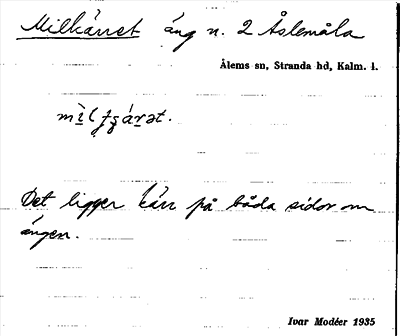 Milkärret äng n. 2 Åslemåla
Ålems sn, Stranda hd, Kalm. l.
Det ligger kärr på båda sidor om
ängen.
Ivar Modéer 1935